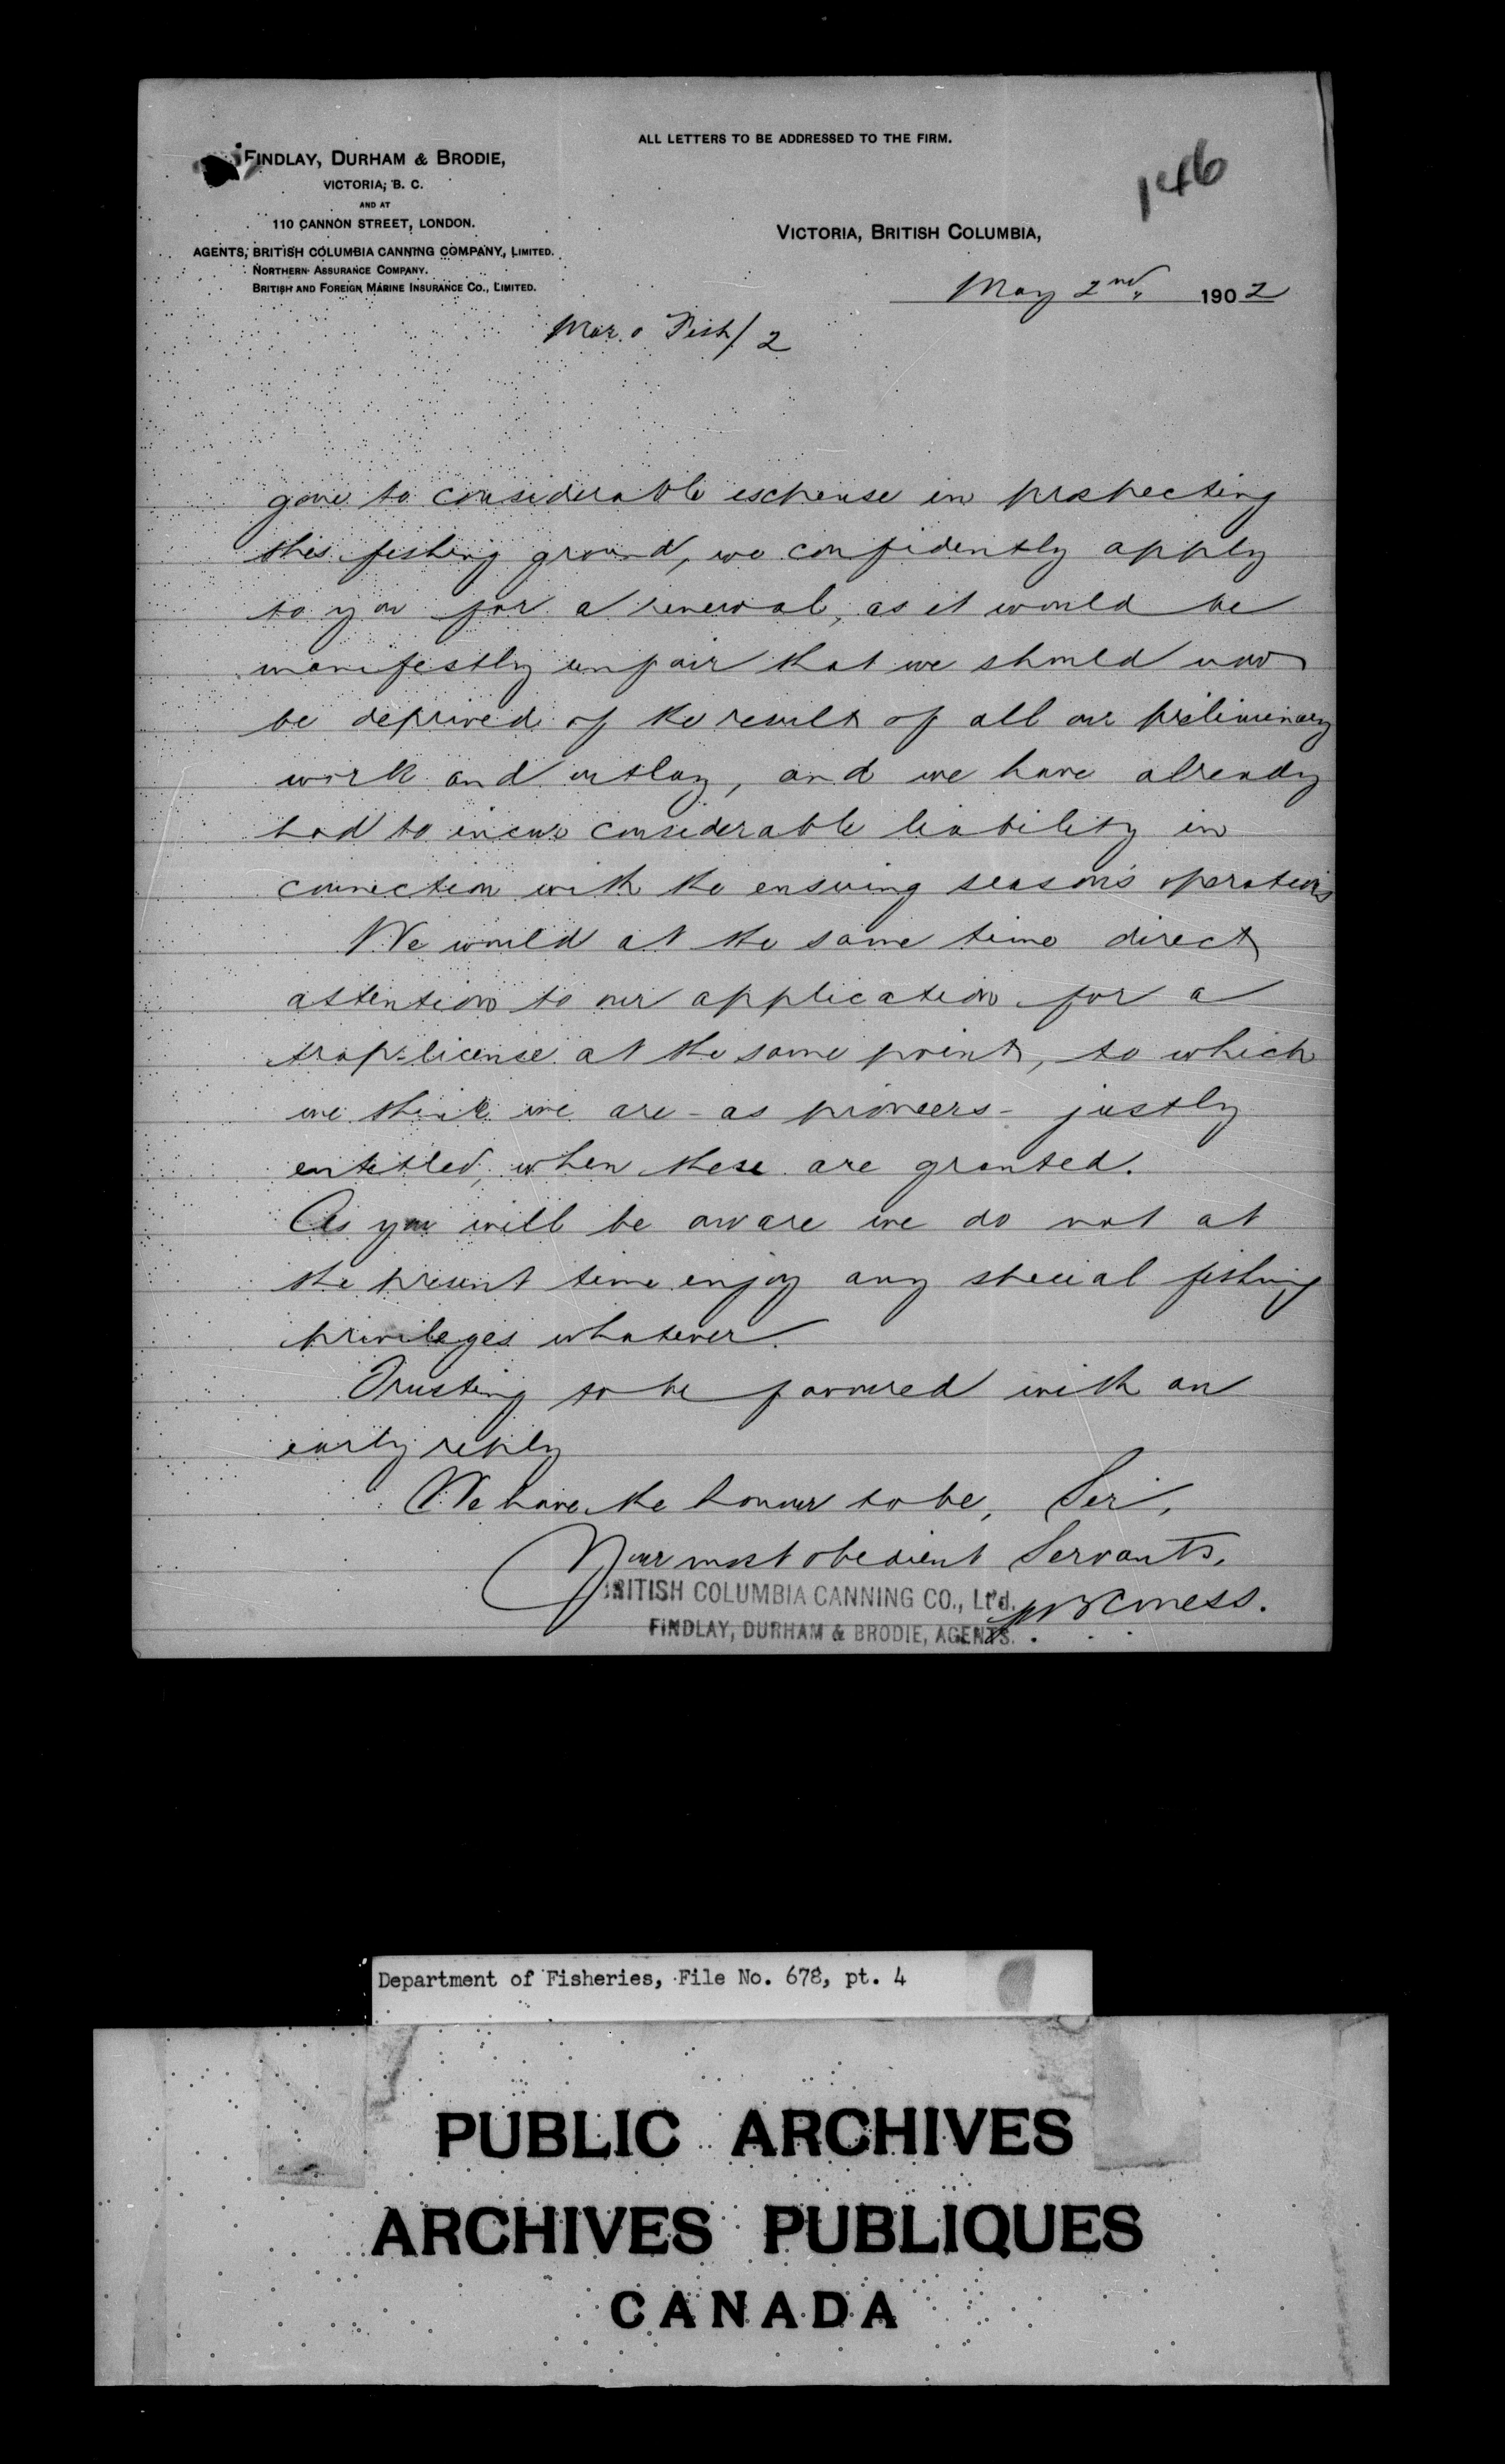 ALL LETTERS TO BE ADDRESSED TO THE FIRM.
146
FINDLAY, DURHAM & BRODIE,
VICTORIA, B. C.
AND AT
110 CANNON STREET, LONDON.
AGENTS, BRITISH COLUMBIA CANNING COMPANY, LIMITED.
NORTHERN ASSURANCE COMPANY.
BRITISH AND FOREIGN MARINE INSURANCE CO., LIMITED.
VICTORIA, BRITISH COLUMBIA,
May 2nd, 1902
Mar. & Fish/2
gone to considerable expense in prospecting
this fishing ground, we confidently apply
to you for a renewal, as it would be
manifestly unfair that we should now
be deprived of the result of all our preliminary
work and outlay, and we have already
had to incur considerable liability in
connection with the ensuing season's operations
We would at the same time direct
attention to our application for a
trap-license at the same point, to which
we think we are - as pioneers - justly
entitled, when these are granted.
As you will be aware we do not at
the present time enjoy any special fishing
privileges whatever.
Trusting to be favoured with an
early reply
We have the honour to be, Sir,
Your most obedient Servants,
BRITISH COLUMBIA CANNING CO., Lt'd.
FINDLAY, DURHAM & BRODIE, AGENTS.
Department of Fisheries, File No. 678, pt. 4
PUBLIC ARCHIVES
ARCHIVES PUBLIQUES
CANADA